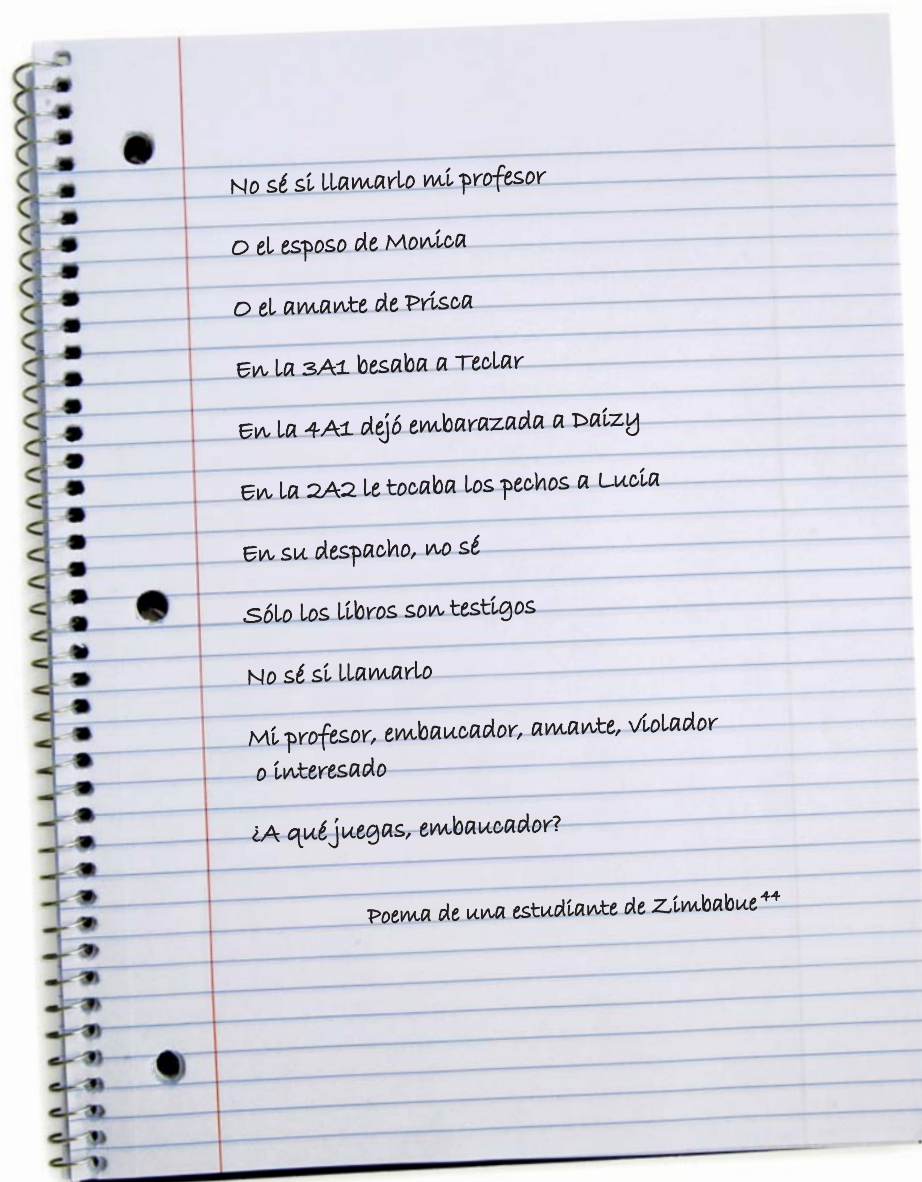 No sé si llamarlo mi profesor
O el esposo de Monica
O el amante de Prisca
En la 3A1 besaba a Teclar
En la 4A1 dejó embarazada a Daizy
En la 2A2 le tocaba los pechos a Lucía
En su despacho, no sé
Sólo los libros son testigos
No sé si llamarlo
Mi profesor, embaucador, amante, violador
o interesado
¿A qué juegas, embaucador?
Poema de una estudiante de Zimbabue44